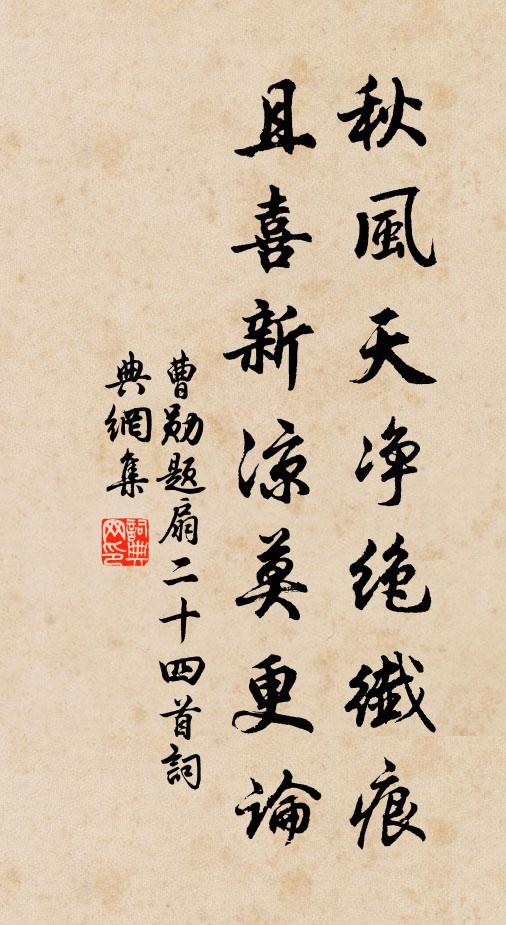 秋風天净絶纖痕
且喜新凉莫更論
曹勛題扇二十四首詞
典網集
詞典网印